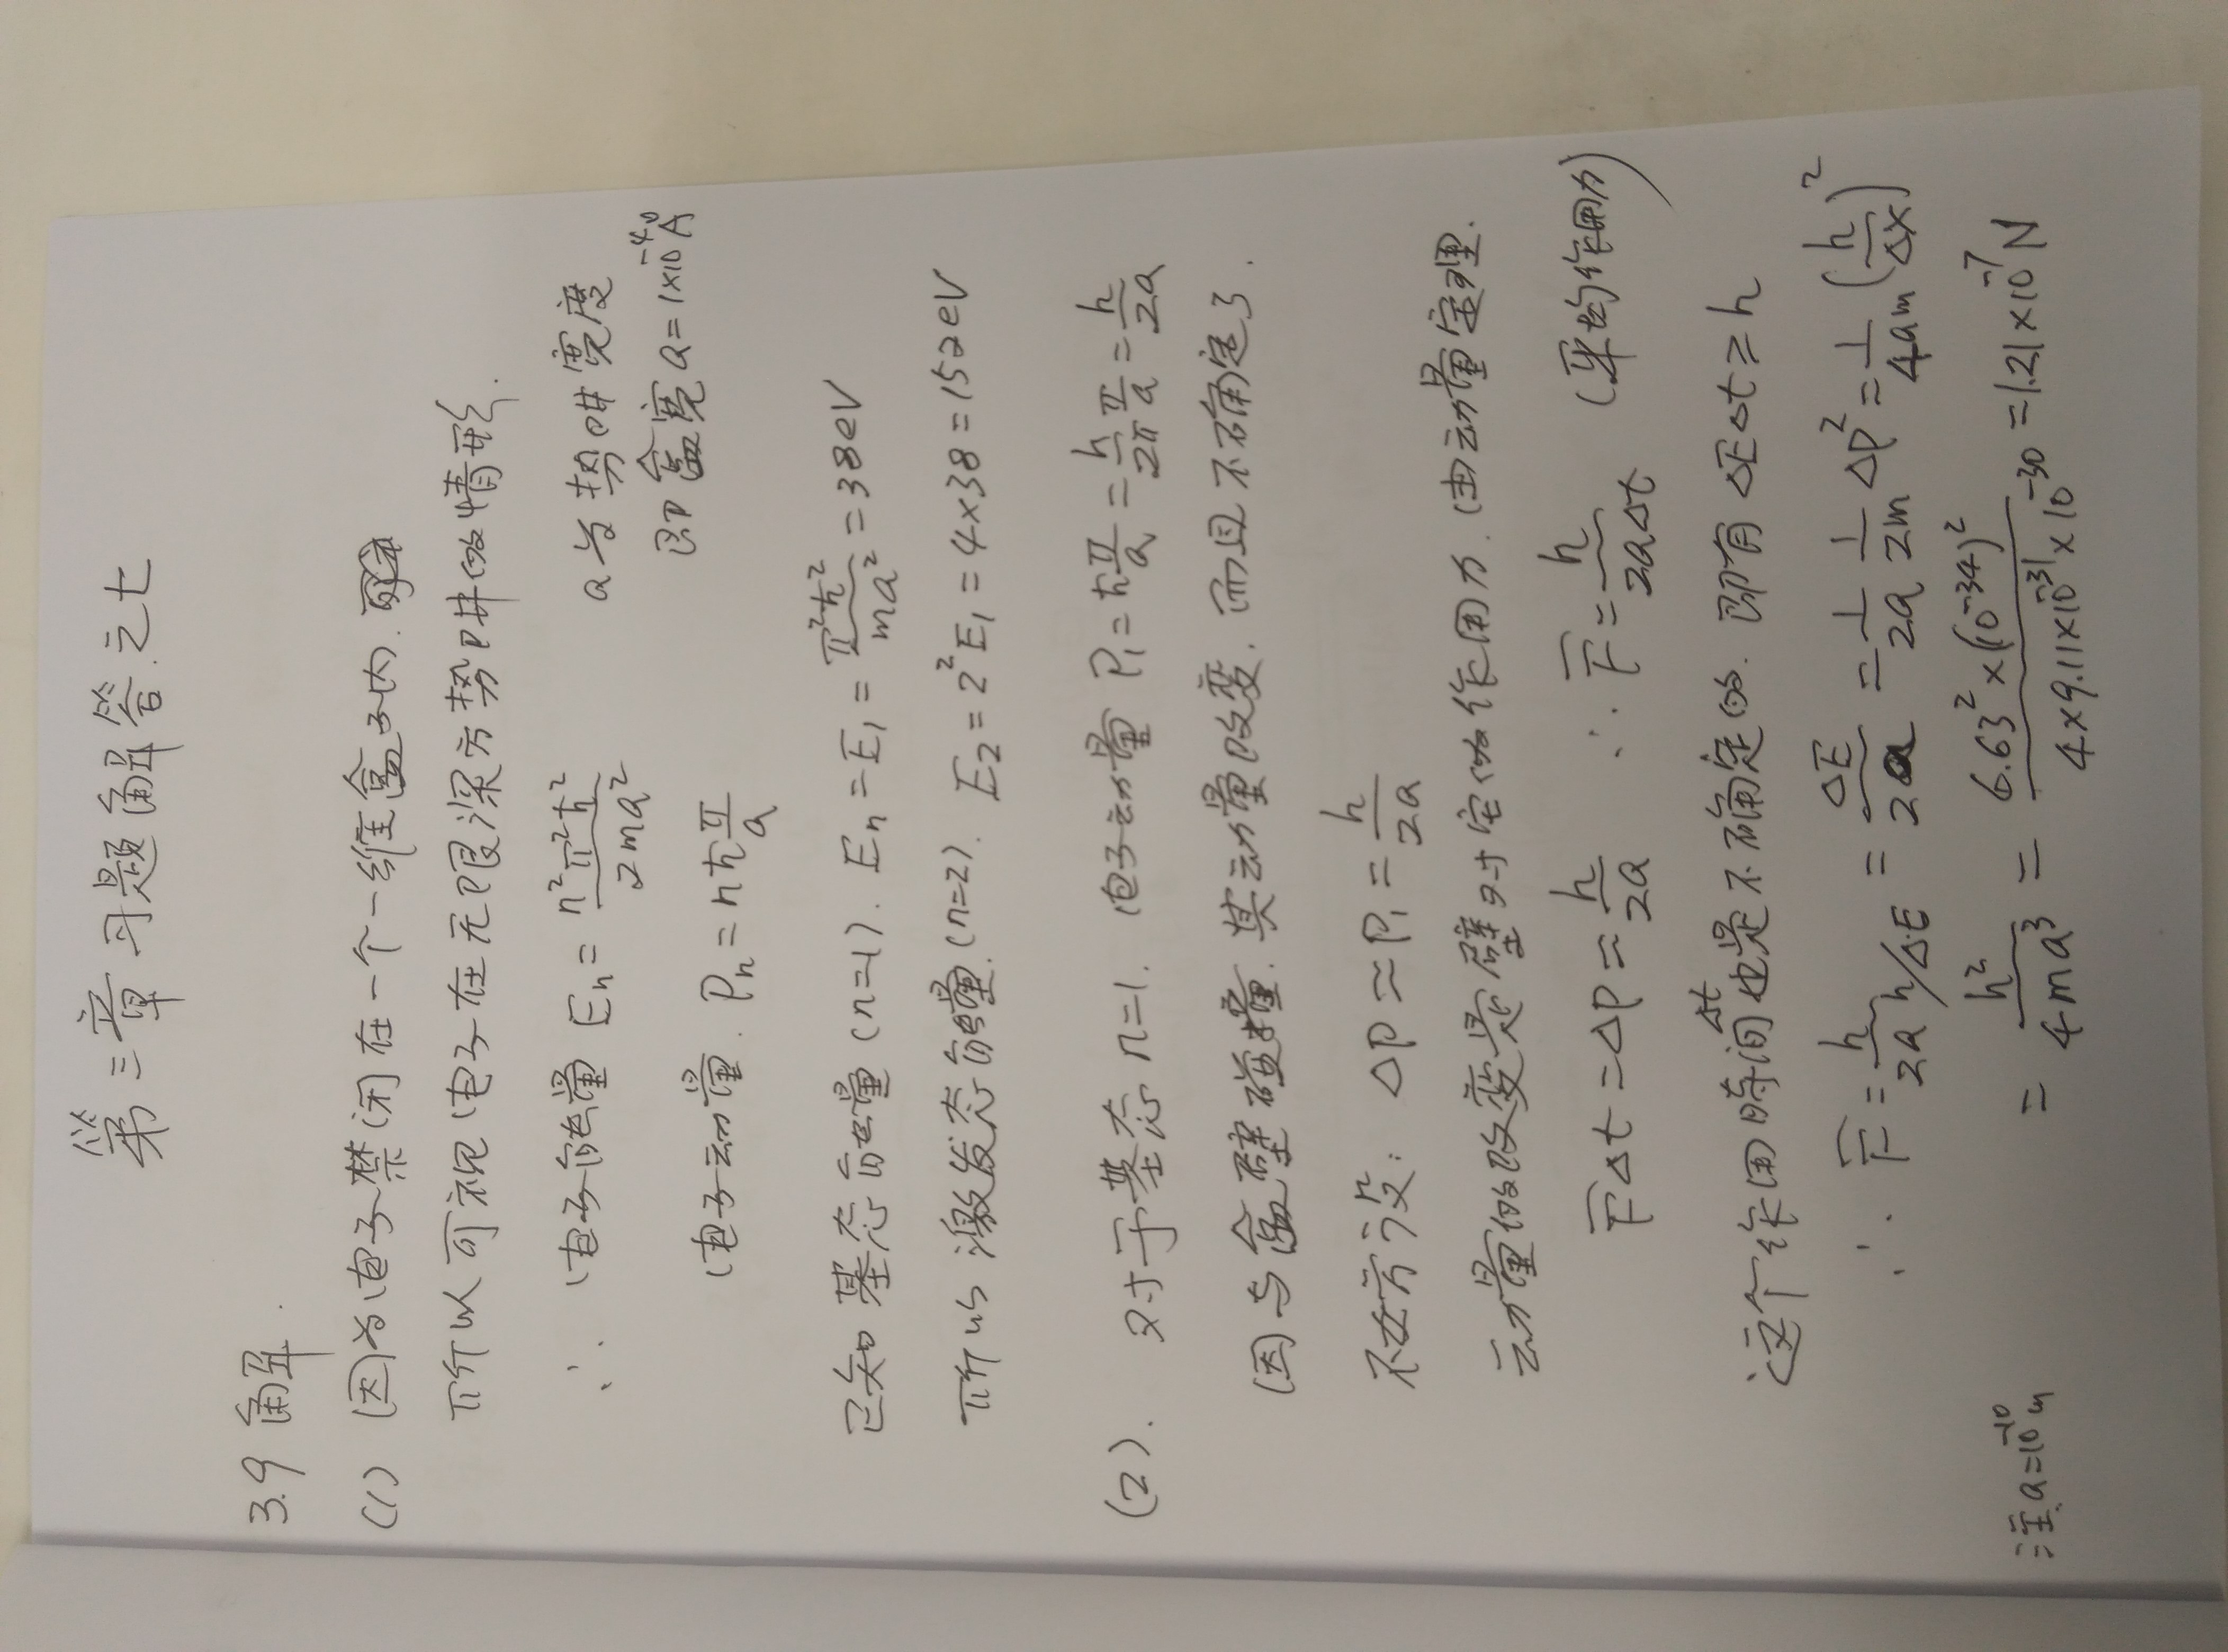 第三章习题解答.之七
3.9 解.
(1) 因为电子禁闭在一个一维盒子内.
所以可视电子在无限深方势阱的情形.
∴ 电子能量 Eₙ = n²π²ħ²/2ma² a为势阱宽度
即盒宽 a=1×10⁻⁴Å
电子动量. Pₙ = nħπ/a
已知基态能量 (n=1). Eₙ = E₁ = π²ħ²/ma² = 38eV
所以激发态能量.(n=2). E₂ = 2²E₁ = 4×38 = 152eV
(2). 对于基态 n=1. 电子动量 P₁ = ħπ/a = h/2π π/a = h/2a
因与盒壁碰撞.其动量改变.而且不确定了.
不妨设: ΔP≈P₁ = h/2a
动量的改变是壁对它的作用力.由动量定理.
F̅Δt = ΔP = h/2a ∴ F̅ = h/2aΔt (平均作用力)
这个作用时间Δt也是不确定的. 即有 ΔEΔt ≥ h
∴ F̅ = h/2a h/ΔE = ΔE/2a = 1/2a 1/2m ΔP² = 1/4am (h/Δx)²
= h²/4ma³ = 6.63²×(10⁻³⁴)²/4×9.11×10⁻³¹×10⁻³⁰ = 1.21×10⁻⁷N
注a=10⁻¹⁰m